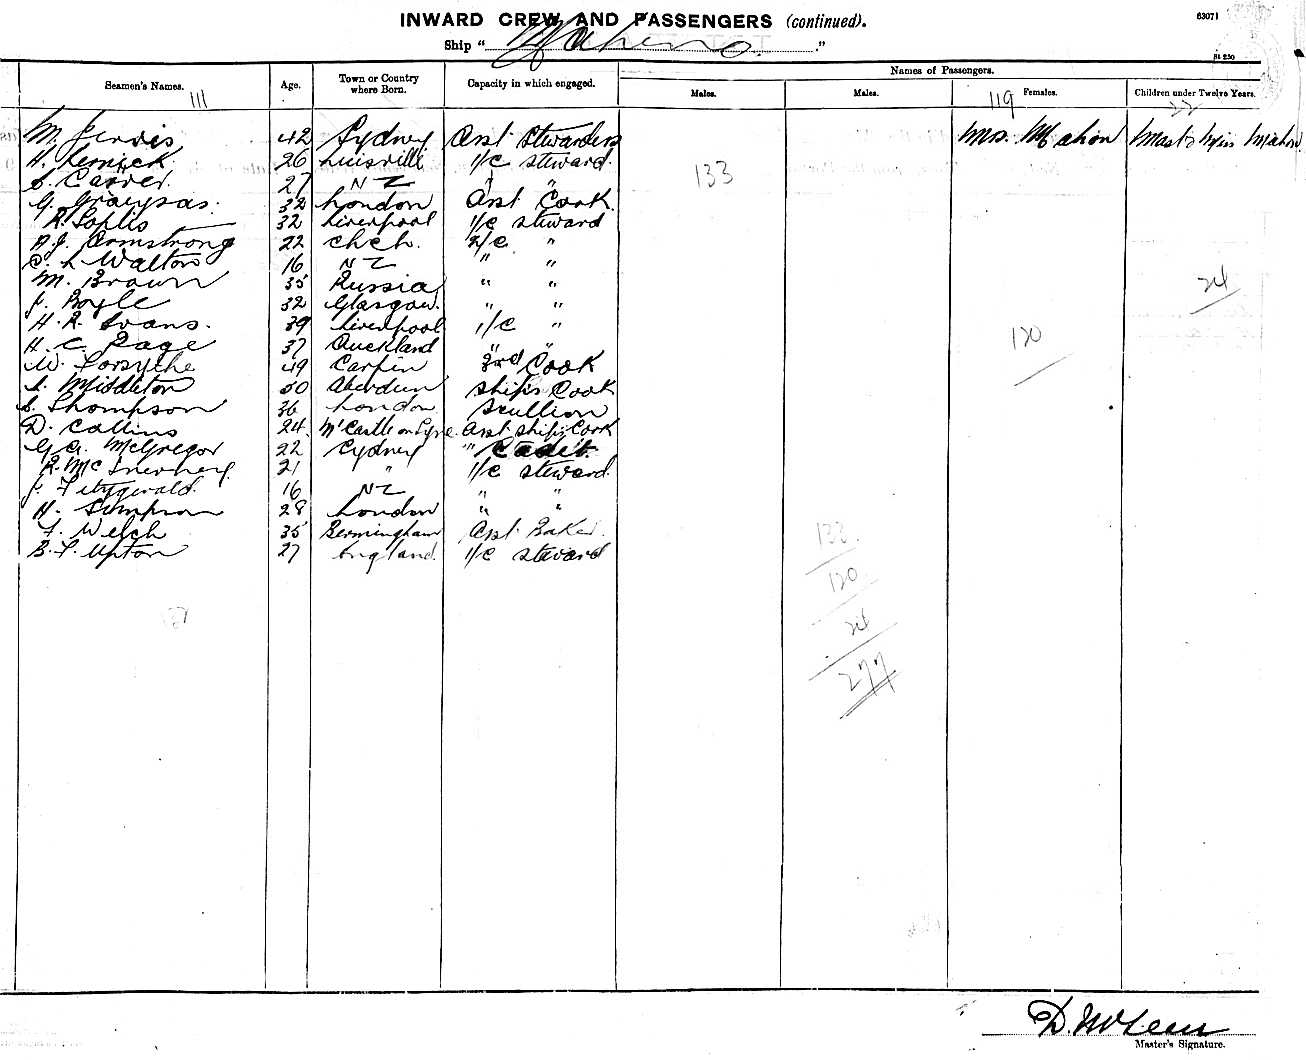 INWARD CREW AND PASSENGERS (continued).
63071
Ship "Maheno."
Names of Passengers.
Seamen's Names. Age. Town or Country where Born. Capacity in which engaged. Males. Males. Females. Children under Twelve Years.
111 119 22
M. Jervis 42 Sydney Asst Stewardess Mrs. McMahon Mast & Miss McMahon
H. 26 Luisville 1/C steward
S. Carver. 27 NZ " " 133
G. 32 London Asst Cook
R. 32 Liverpool 1/C steward
A.J. Armstrong 22 Chch. 2/C "
C. L Walton 16 NZ " "
M. Brown 35 Russia " "
J. Boyle 32 Glasgow. " "
24
H. R. Evans. 39 Liverpool 1/C "
H. C. Page 37 Auckland " "
120
W. Forsythe 49 Carfin 3rd Cook
A. Middleton 50 Aberdeen Ship's Cook
S. Thompson 36 London Scullion
D. Collins 24 N'Castle on Tyne Asst Ship's Cook
G. A. McGregor 22 Sydney " Cadet.
R. McInerney. 21 " 1/C steward
J. Fitzgerald. 16 NZ " "
H. Simpson 28 London " "
F. Welch 35 Bermingham Asst Baker
B. F. Upton 27 England. 1/C steward
133.
120
24
277
D. McLean
Master's Signature.